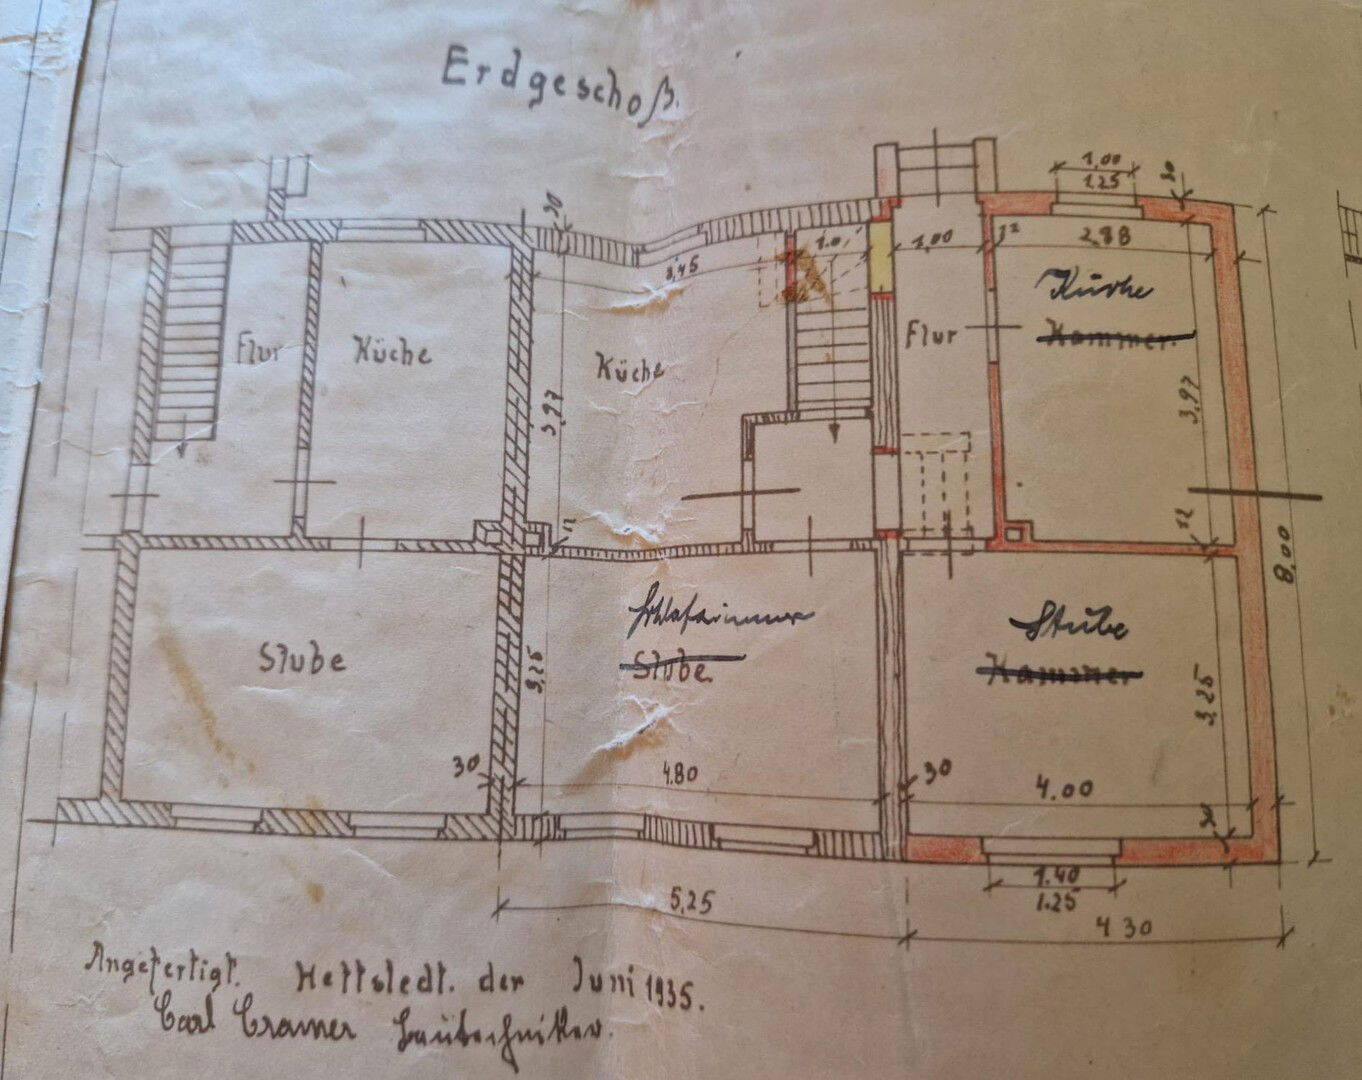 Erdgeschoß.
1,00
1.25
30
30
1.0
1,00
12
2,88
3,45
Küche
Kammer.
Flur
Küche
Küche
Flur
3,97
3,97
12
12
8,00
Schlafzimmer
Stube.
Stube
Kammer
Stube
3,25
3,25
30
4.80
30
4.00
30
1.40
1.25
5,25
4 30
Angefertigt. Hettstedt. der Juni 1935.
Carl Cramer Bautechniker.